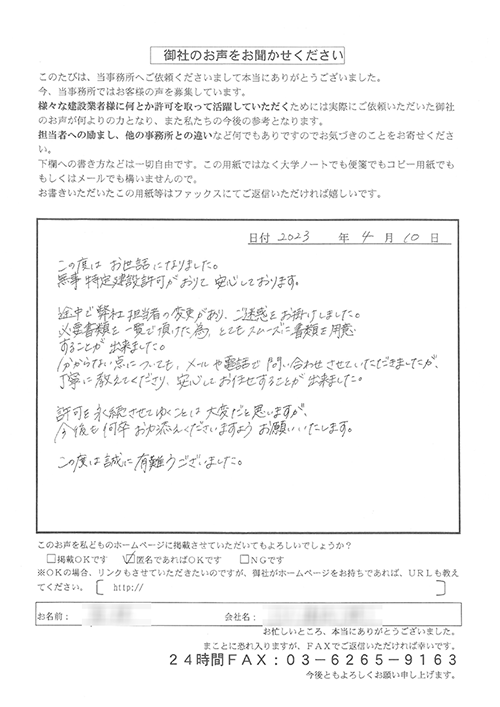 御社のお声をお聞かせください
このたびは、当事務所へご依頼くださいまして本当にありがとうございました。
今、当事務所ではお客様の声を募集しています。
様々な建設業者様に何とか許可を取って活躍していただくためには実際にご依頼いただいた御社
のお声が何よりの力となり、また私たちの今後の参考となります。
担当者への励まし、他の事務所との違いなど何でもありですのでお気づきのことをお寄せくださ
い。
下欄への書き方などは一切自由です。この用紙ではなく大学ノートでも便箋でもコピー用紙でも
もしくはメールでも構いませんので。
お書きいただいたこの用紙等はファックスにてご返信いただければ嬉しいです。
日付 2023 年 4 月 10 日
この度は お世話になりました。
無事 特定建設許可がおりて 安心しております。
途中で弊社担当者の変更があり、ご迷惑をお掛けしました。
必要書類を一覧で頂けた為、とてもスムーズに書類を用意
することが出来ました。
分からない点についても、メールや電話で問い合わせさせていただきましたが、
丁寧に教えてくださり、安心してお任せすることが出来ました。
許可を永続させてゆくことは大変だと思いますが、
今後も何卒お力添えくださいますよう お願いいたします。
この度は誠に有難うございました。
このお声を私どものホームページに掲載させていただいてもよろしいでしょうか？
□掲載OKです ☑匿名であればOKです □NGです
※OKの場合、リンクもさせていただきたいのですが、御社がホームページをお持ちであれば、URLも教え
てください。〔 http:// 〕
お名前： 会社名：
お忙しいところ、本当にありがとうございました。
まことに恐れ入りますが、FAXでご返信いただければ幸いです。
24時間FAX：03-6265-9163
今後ともよろしくお願い申し上げます。